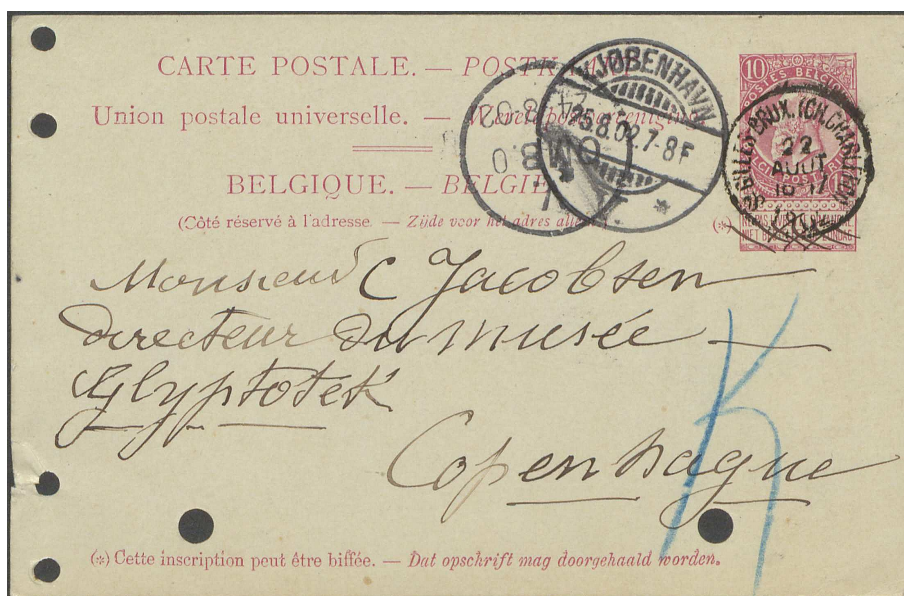 CARTE POSTALE. — POSTK
Union postale universelle. —
BELGIQUE. — BELGI
(Côté réservé à l'adresse. — Zijde voor het adres alle
(*)
10
POSTES BELG
KJØBENHAVN
25.8.02.7-8F
24.8.02
OMB.
BRUX.
22
AOUT
Monsieur C Jacobsen
directeur du musée —
Glyptotek
Copenhague
K
(*) Cette inscription peut être biffée. — Dat opschrift mag doorgehaald worden.